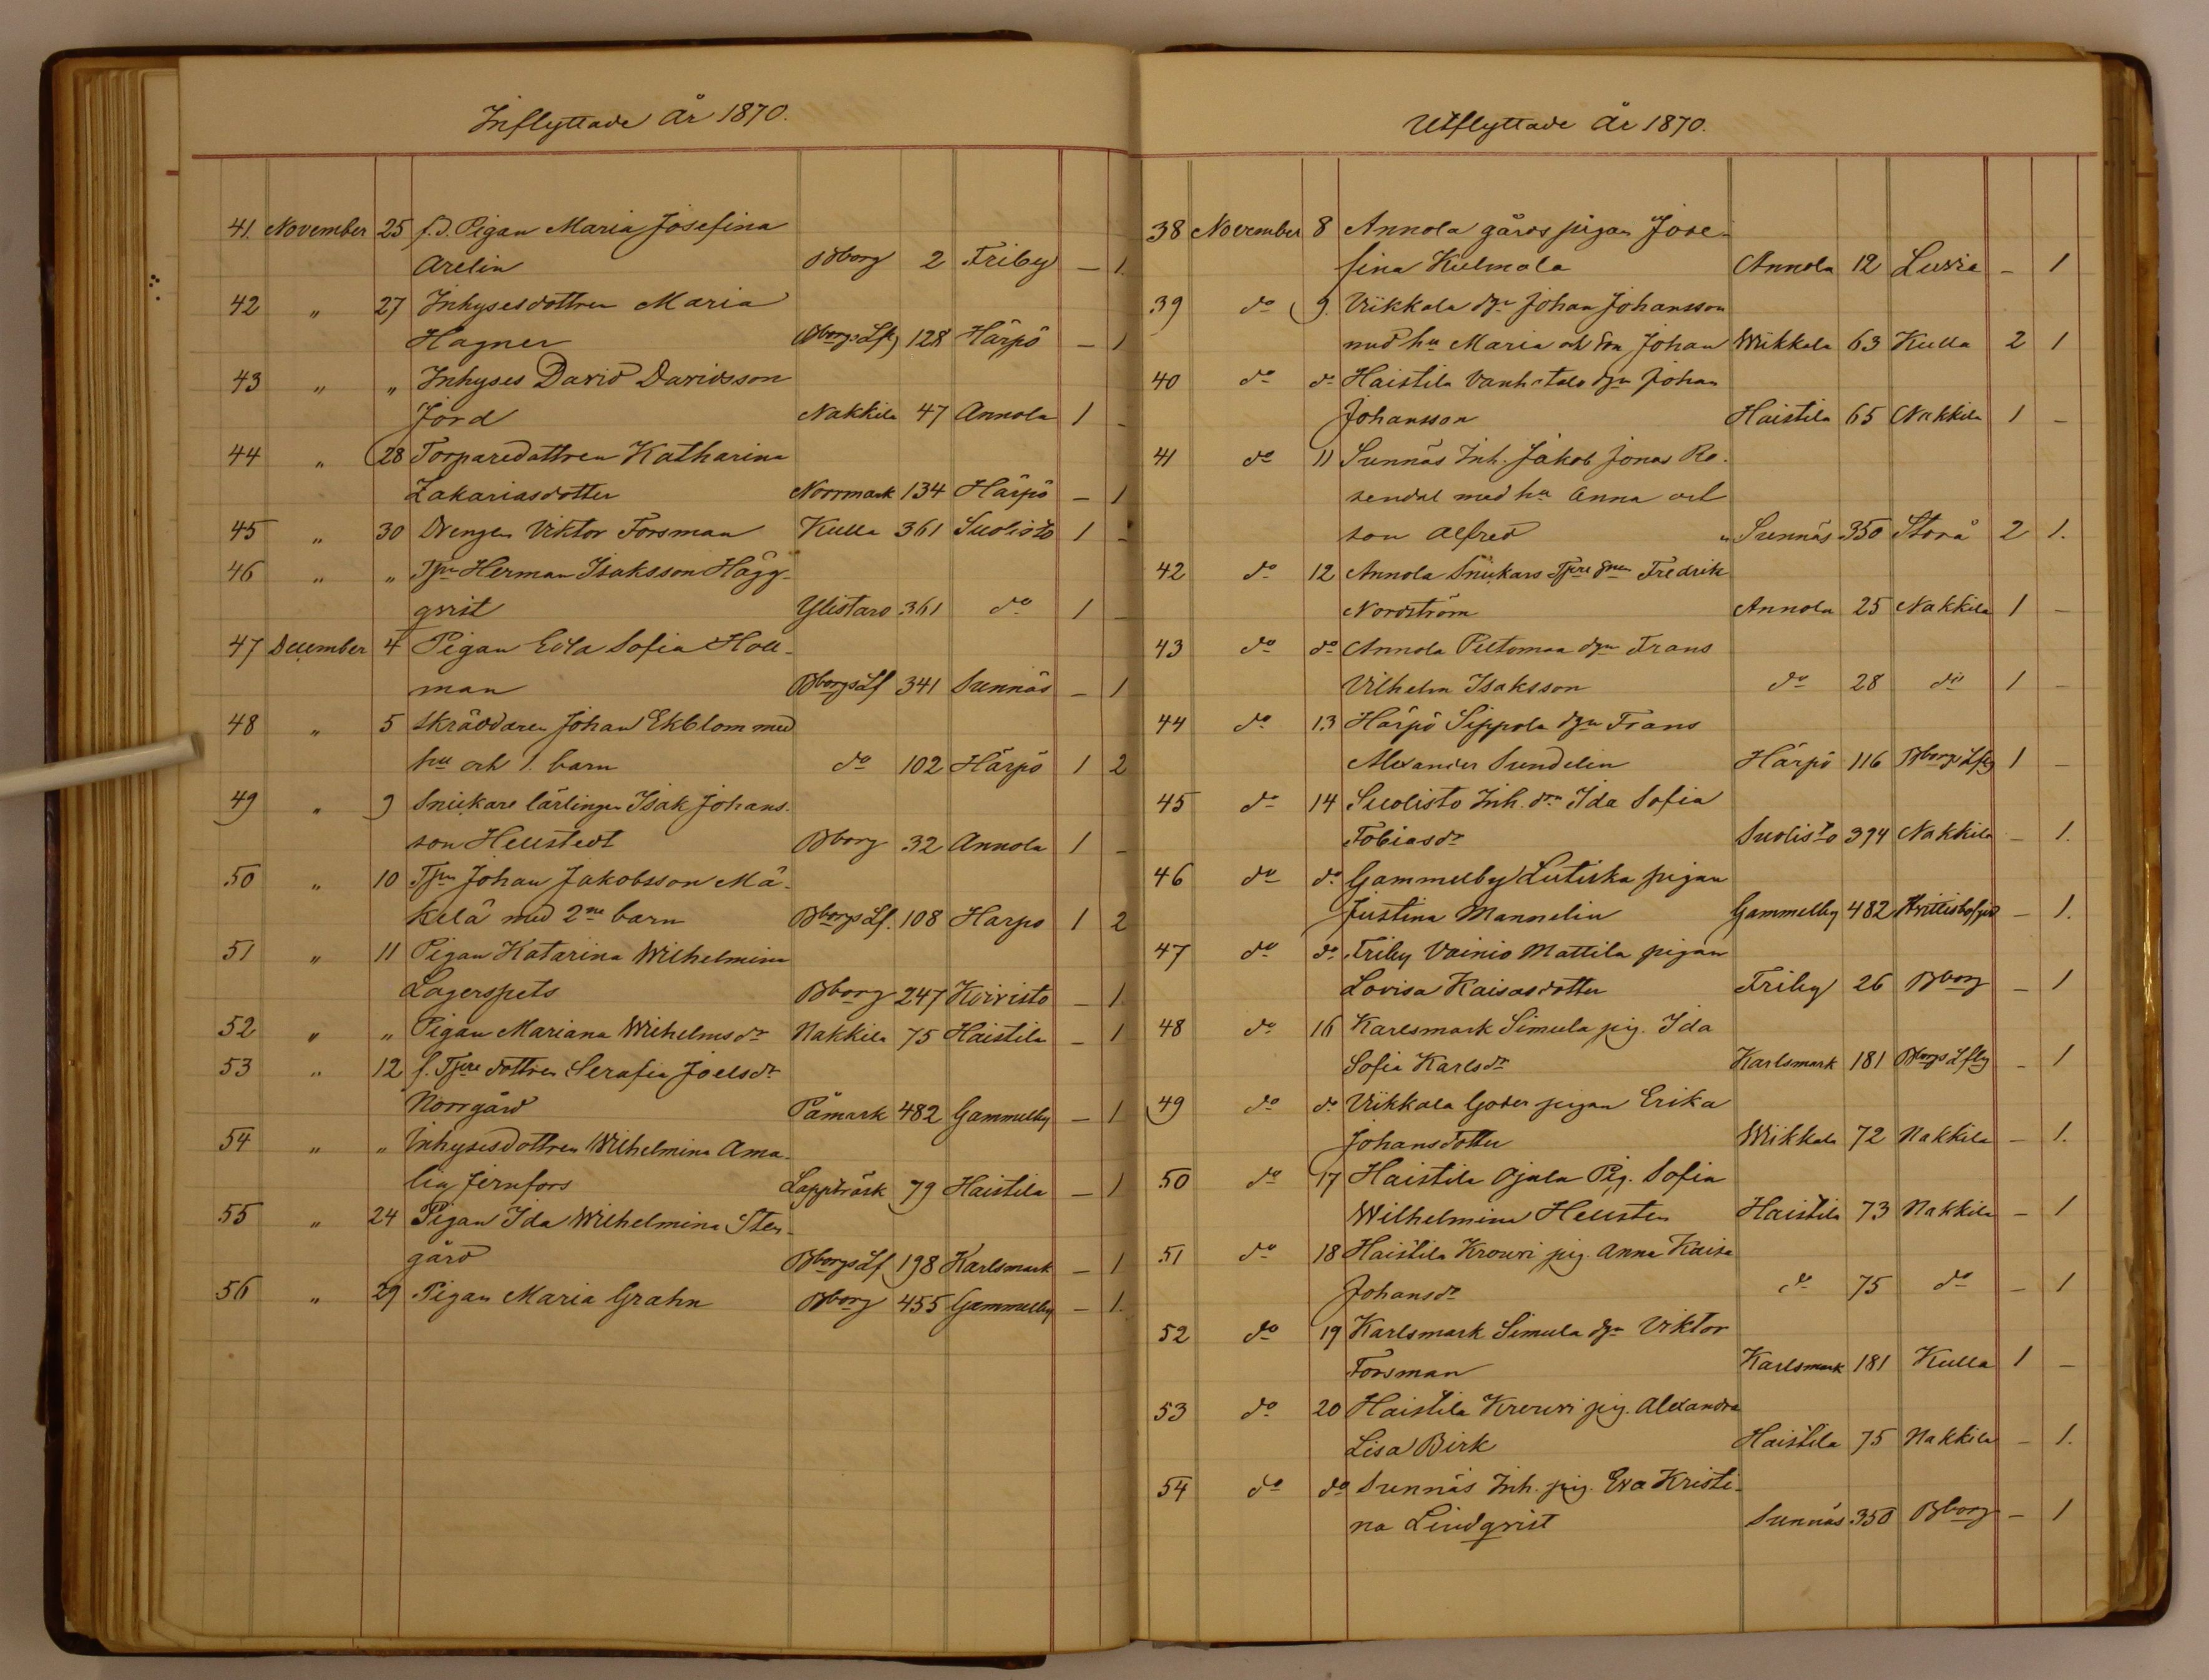 Inflyttade År 1870.
41. November 25 f.d. Pigan Maria Josefina
Arelin Bborg 2 Friby — 1.
42 " 27 Inhysesdottren Maria
Hagner Bborgs Lfg 128 Härpö — 1
43 " " Inhyses David Davidsson
Jord Nakkila 47 Annola 1 —
44 " 28 Torparedottren Katharina
Zakariasdotter Norrmark 134 Härpö — 1
45 " 30 Drengen Viktor Forsman Kulla 361 Suolisto 1 —
46 " " Tjpn Herman Isaksson Hägg-
qvist Ylistaro 361 do 1 —
47 December 4 Pigan Edla Sofia Holl-
man Bborgs Lf 341 Sunnäs — 1
48 " 5 Skräddaren Johan Ekblom med
hu och 1. barn do 102 Härpö 1 2
49 " 9 Snickare lärlingen Isak Johans-
son Hellstedt Bborg 32 Annola 1 —
50 " 10 Tjpn Johan Jakobsson Mä-
kelä med 2ne barn Bborgs Lf. 108 Harpo 1 2
51 " 11 Pigan Katarina Wilhelmina
Lagerspets Bborg 247 Koivisto — 1
52 " " Pigan Mariana Wilhelmsdr Nakkila 75 Haistila — 1
53 " 12 f. Tjpre dottren Serafia Joelsdr
Norrgård Påmark 482 Gammelby — 1
54 " " Inhysesdottren Wilhelmina Ama-
lia Jernfors Lappträsk 79 Haistila — 1
55 " 24 Pigan Ida Wilhelmina Sten-
gård Bborgs Lf 198 Karlsmark — 1
56 " 29 Pigan Maria Grahn Bborg 455 Gammelby — 1.
Utflyttade År 1870.
38 November 8 Annola gårds pigan Jose-
fina Kulmala Annola 12 Luvia — 1
39 do 9. Viikkala dgn Johan Johansson
med hu Maria och son Johan Wiikkala 63 Kulla 2 1
40 do do Haistila Vanhatalo dgn Johan
Johansson Haistila 65 Nakkila 1 —
41 do 11 Sunnäs Inh. Jakob Jonas Ro-
sendal med hu Anna och
son Alfred Sunnäs 350 Storå 2 1.
42 do 12 Annola Snickars Fredrik
Nordström Annola 25 Nakkila 1 —
43 do do Annola Peltomaa dgn Frans
Vilhelm Isaksson do 28 do 1 —
44 do 13 Härpö Sippola dgn Frans
Alexander Sundelin Härpö 116 Bborgs Lfg 1 —
45 do 14 Suolisto Inh. drn Ida Sofia
Tobiasdr Suolisto 394 Nakkila — 1.
46 do do Gammelby Lutiska pigan
Justina Mannelin Gammelby 482 — 1.
47 do do Friby Vainio Mattila pigan
Lovisa Kaisasdotter Friby 26 Bborg — 1
48 do 16 Karlsmark Simula pig. Ida
Sofia Karlsdr Karlsmark 181 Bborgs Lfg — 1
49 do do Viikkala Goder pigan Erika
Johansdotter Wiikkala 72 Nakkila — 1.
50 do 17 Haistila Ojala Pig. Sofia
Wilhelmina Hellsten Haistila 73 Nakkila — 1
51 do 18 Haistila Krouvi pig. Anna Kaisa
Johansdr do 75 do — 1
52 do 19 Karlsmark Simula dgn Viktor
Forsman Karlsmark 181 Kulla 1 —
53 do 20 Haistila Krouvi pig. Alexandra
Lisa Birk Haistila 75 Nakkila — 1.
54 do do Sunnäs Inh. pig. Eva Kristi-
na Lindqvist Sunnäs 350 Bborg — 1